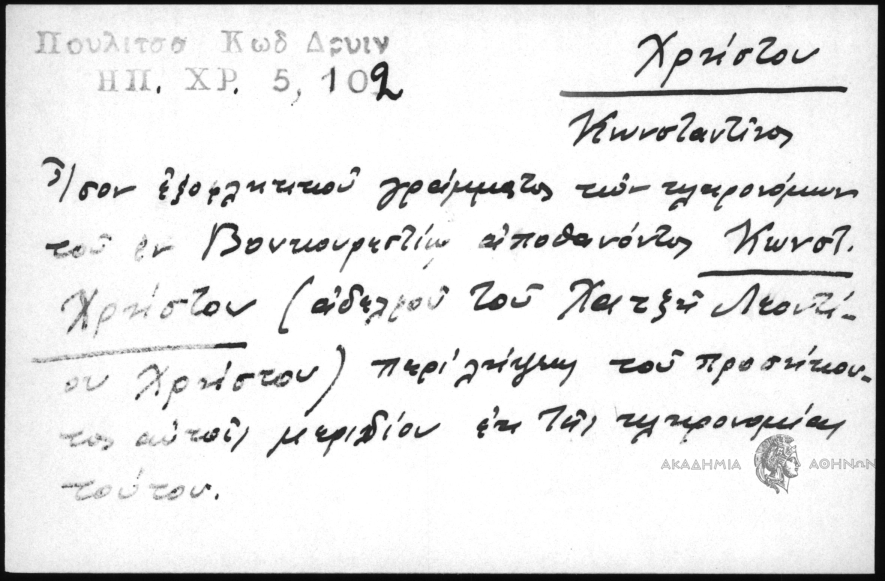 Πουλιτσα Κωδ Δρυιν
ΗΠ. ΧΡ. 5, 102
Χρήστου
Κωνσταντῖνος
Ἴσον ἐξοφλητικοῦ γράμματος τῶν κληρονόμων
τοῦ ἐν Βουκουρεστίῳ ἀποθανόντος Κωνστ.
Χρήστου (ἀδελφοῦ τοῦ Χατζῆ Λεοντί-
ου Χρήστου) περὶ λήψεως τοῦ προσήκον-
τος αὐτοῖς μεριδίου ἐκ τῆς κληρονομίας
τούτου.
ΑΚΑΔΗΜΙΑ ΑΘΗΝΩΝ